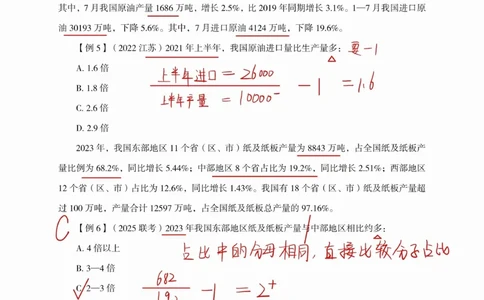 其中，7 月我国原油产量 1686 万吨，增长 2.5%，比 2019 年同期增长 3.1%。1—7 月我国进口原
油 30193 万吨，下降 5.6%。其中，7 月进口原油 4124 万吨，下降 19.6%。
【例 5】（2022 江苏）2021 年上半年，我国原油进口量比生产量多： 要一1
A. 1.6 倍
上半年进口 = 26000
上半年产量 = 10000⁻ - 1 = 1.6
B. 1.8 倍
C. 2.6 倍
D. 2.9 倍
2023 年，我国东部地区 11 个省（区、市）纸及纸板产量为 8843 万吨，占全国纸及纸板产
量比例为 68.2%，同比增长 5.44%；中部地区 8 个省占比为 19.2%，同比增长 2.51%；西部地区
12 个省（区、市）占比为 12.6%，同比增长 1.43%。我国有 18 个省（区、市）纸及纸板产量超
过 100 万吨，产量合计 12597 万吨，占全国纸及纸板总产量的 97.16%。
C 【例 6】（2025 联考）2023 年我国东部地区纸及纸板产量与中部地区相比约多：
A. 4 倍以上
占比中的分母相同，直接比较分子占比
B. 3—4 倍
682
192 - 1 = 2⁺
C. 2—3 倍